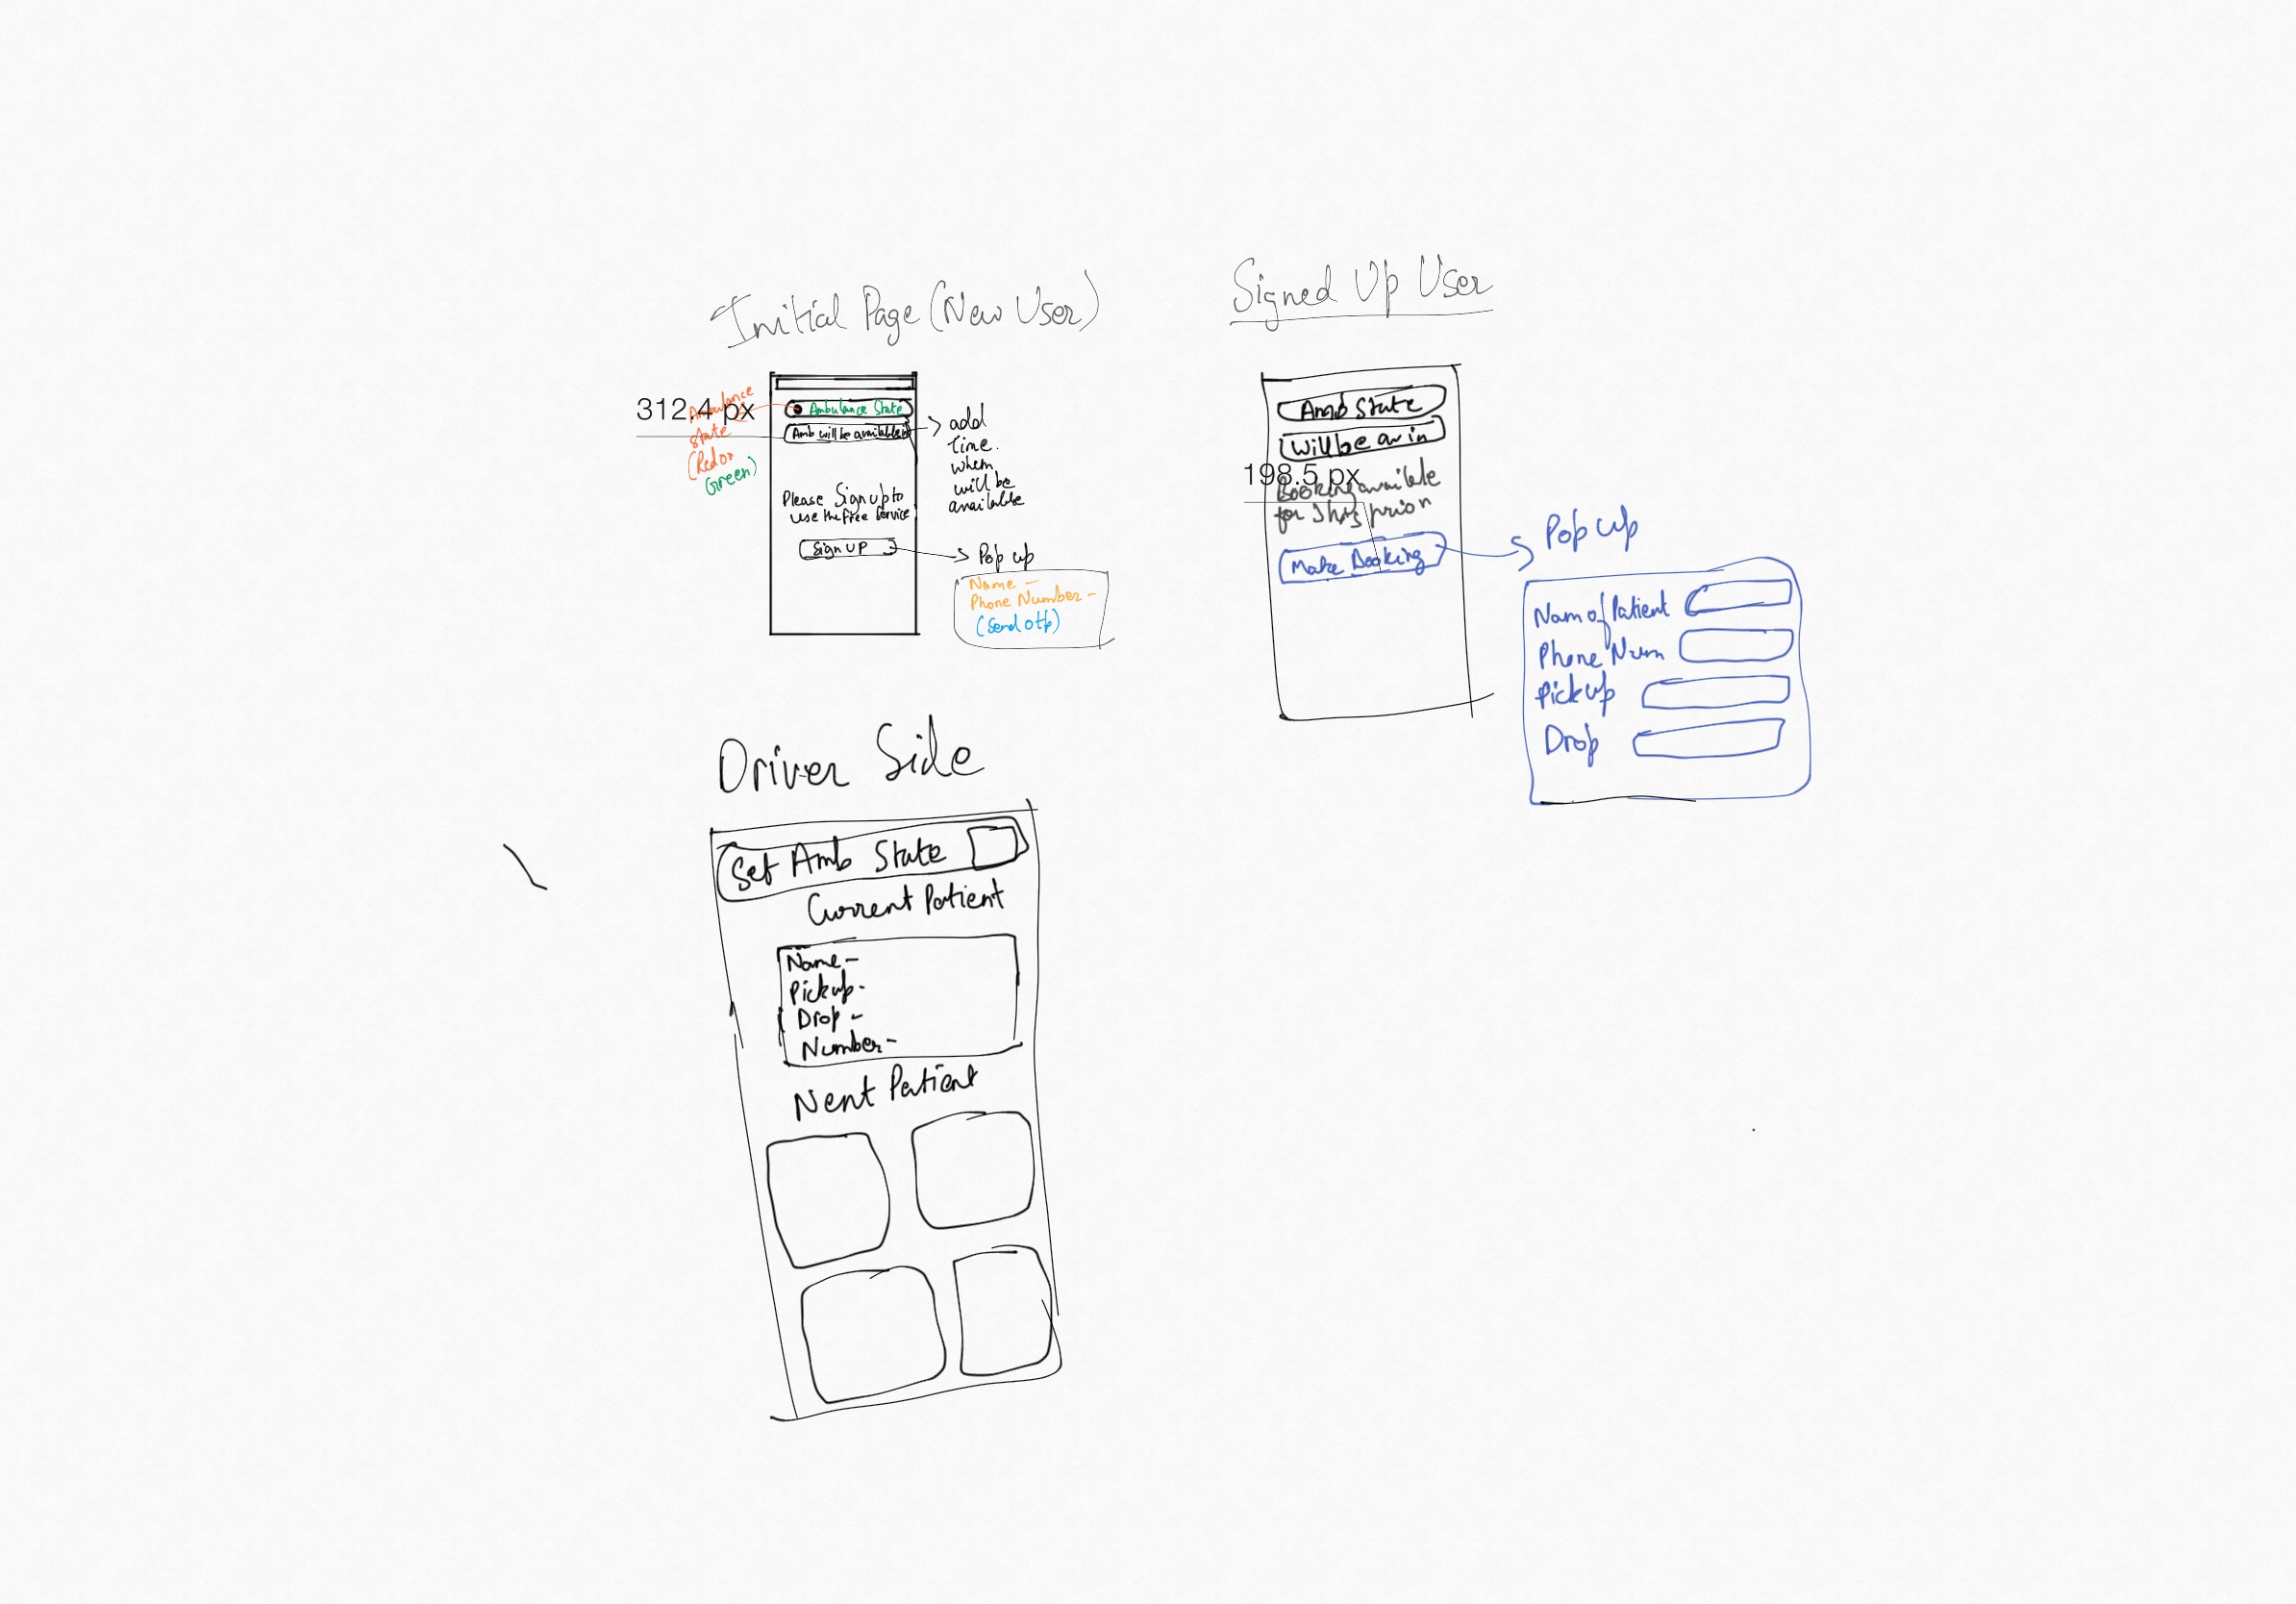 Initial Page (New User)
312.4 px
Ambulance
State
(Red or
Green)
Ambulance State
Amb will be available in
add
time.
when
will be
available
Please Sign up to
use the free service
Sign UP
Pop up
Name -
Phone Number -
(Send Otp)
Signed Up User
Amb State
Will be av in
198.5 px
Booking available
for this
Make Booking
Pop up
Nam of Patient
Phone Num
Pickup
Drop
Driver Side
Set Amb State
Current Patient
Name -
Pickup -
Drop -
Number -
Nent Patient